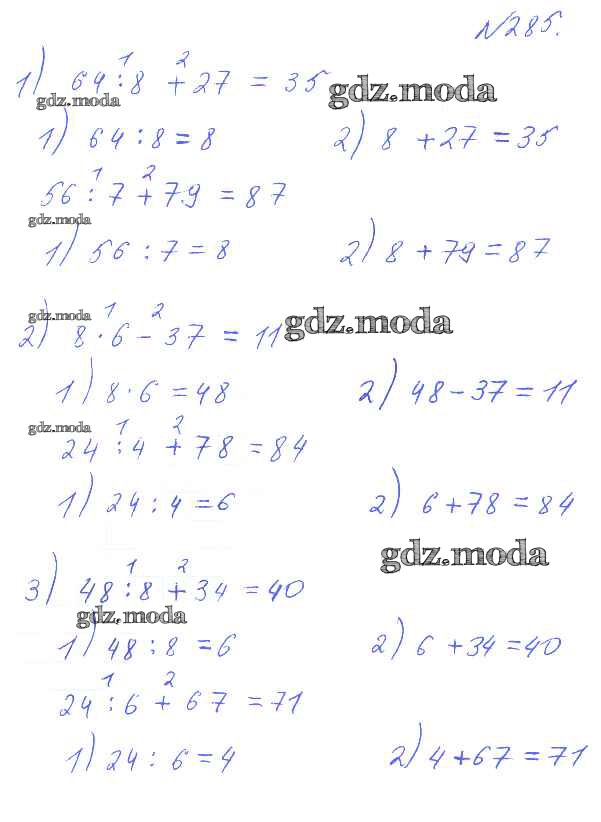 №285.
1 2
1) 64 : 8 + 27 = 35 gdz.moda
gdz.moda
1) 64 : 8 = 8 2) 8 + 27 = 35
1 2
56 : 7 + 79 = 87
gdz.moda
1) 56 : 7 = 8 2) 8 + 79 = 87
gdz.moda 1 2 gdz.moda
2) 8 · 6 - 37 = 11
1) 8 · 6 = 48 2) 48 - 37 = 11
gdz.moda 1 2
24 : 4 + 78 = 84
1) 24 : 4 = 6 2) 6 + 78 = 84
gdz.moda
1 2
3) 48 : 8 + 34 = 40
gdz.moda
1) 48 : 8 = 6 2) 6 + 34 = 40
1 2
24 : 6 + 67 = 71
1) 24 : 6 = 4 2) 4 + 67 = 71